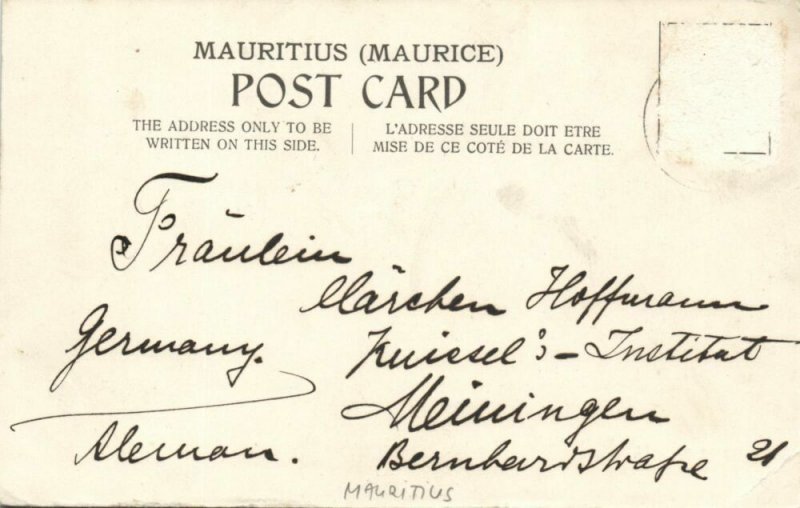 MAURITIUS (MAURICE)
POST CARD
THE ADDRESS ONLY TO BE
WRITTEN ON THIS SIDE.
L'ADRESSE SEULE DOIT ETRE
MISE DE CE COTÉ DE LA CARTE.
Fräulein
Clärchen Hoffmann
Germany.
Kuissel's - Institut
Meiningen
Aleman.
Bernhardstraße 21
MAURITIUS